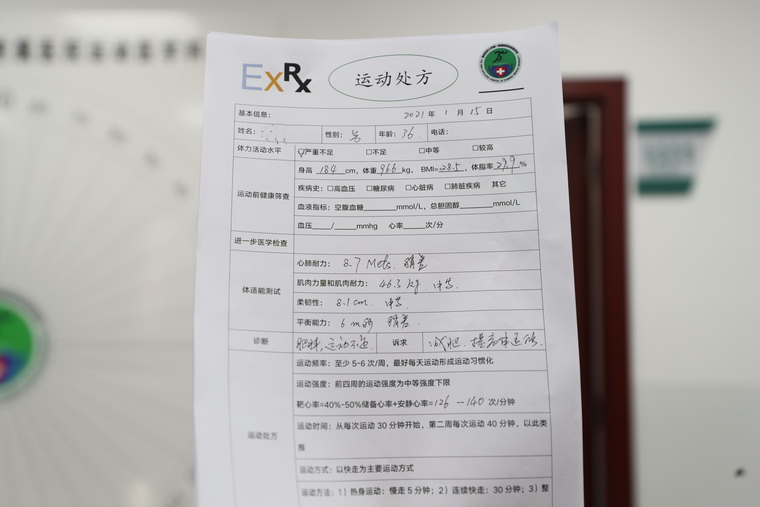 ExRx 运动处方
基本信息: 2021 年 1 月 15 日
姓名: 性别: 男 年龄: 36 电话:
体力活动水平 ☑严重不足 □不足 □中等 □较高
身高 184 cm, 体重 96.6 kg, BMI=28.5, 体脂率 27.9 %
运动前健康筛查 疾病史: □高血压 □糖尿病 □心脏病 □肺脏疾病 其它
血液指标: 空腹血糖______mmol/L, 总胆固醇______mmol/L
血压____/____mmhg 心率____次/分
进一步医学检查
心肺耐力: 8.7 Mets. 稍差
体适能测试 肌肉力量和肌肉耐力: 46.3 kg. 中等.
柔韧性: 8.1cm. 中等.
平衡能力: 6 m秒 稍差.
诊断 肥胖, 运动不足 诉求 减肥. 提高体适能.
运动频率: 至少 5-6 次/周, 最好每天运动形成运动习惯化
运动强度: 前四周的运动强度为中等强度下限
靶心率=40%-50%储备心率+安静心率=126 --140 次/分钟
运动时间: 从每次运动 30 分钟开始, 第二周每次运动 40 分钟, 以此类
推
运动处方
运动方式: 以快走为主要运动方式
运动方法: 1) 热身运动: 慢走 5 分钟; 2) 连续快走: 30 分钟; 3) 整